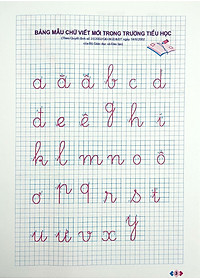 BẢNG MẪU CHỮ VIẾT MỚI TRONG TRƯỜNG TIỂU HỌC
a ă â b c d
đ e ê g h i
k l m n o ô
ơ p q r s t
u ư v x y